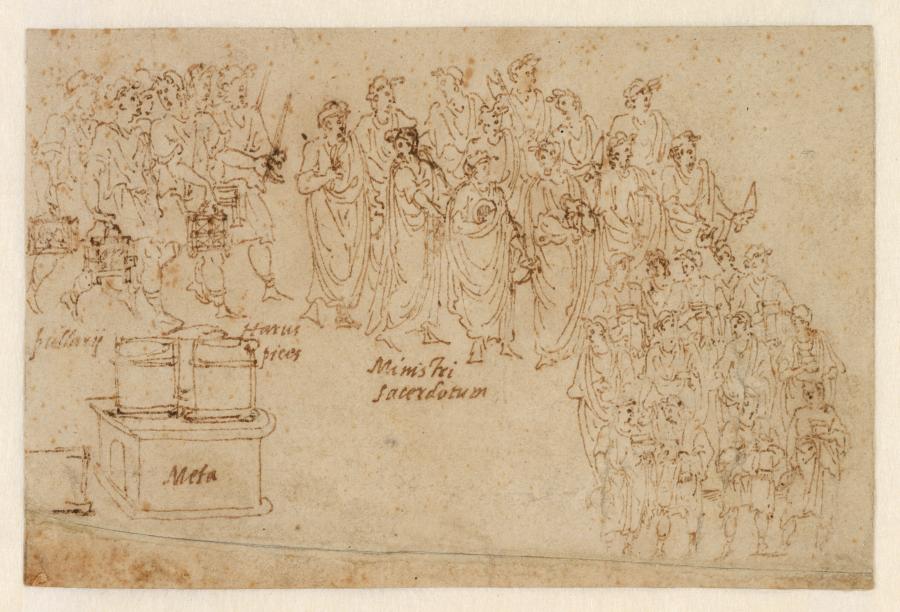 Harus
pices
Ministri
sacerdotum
Meta